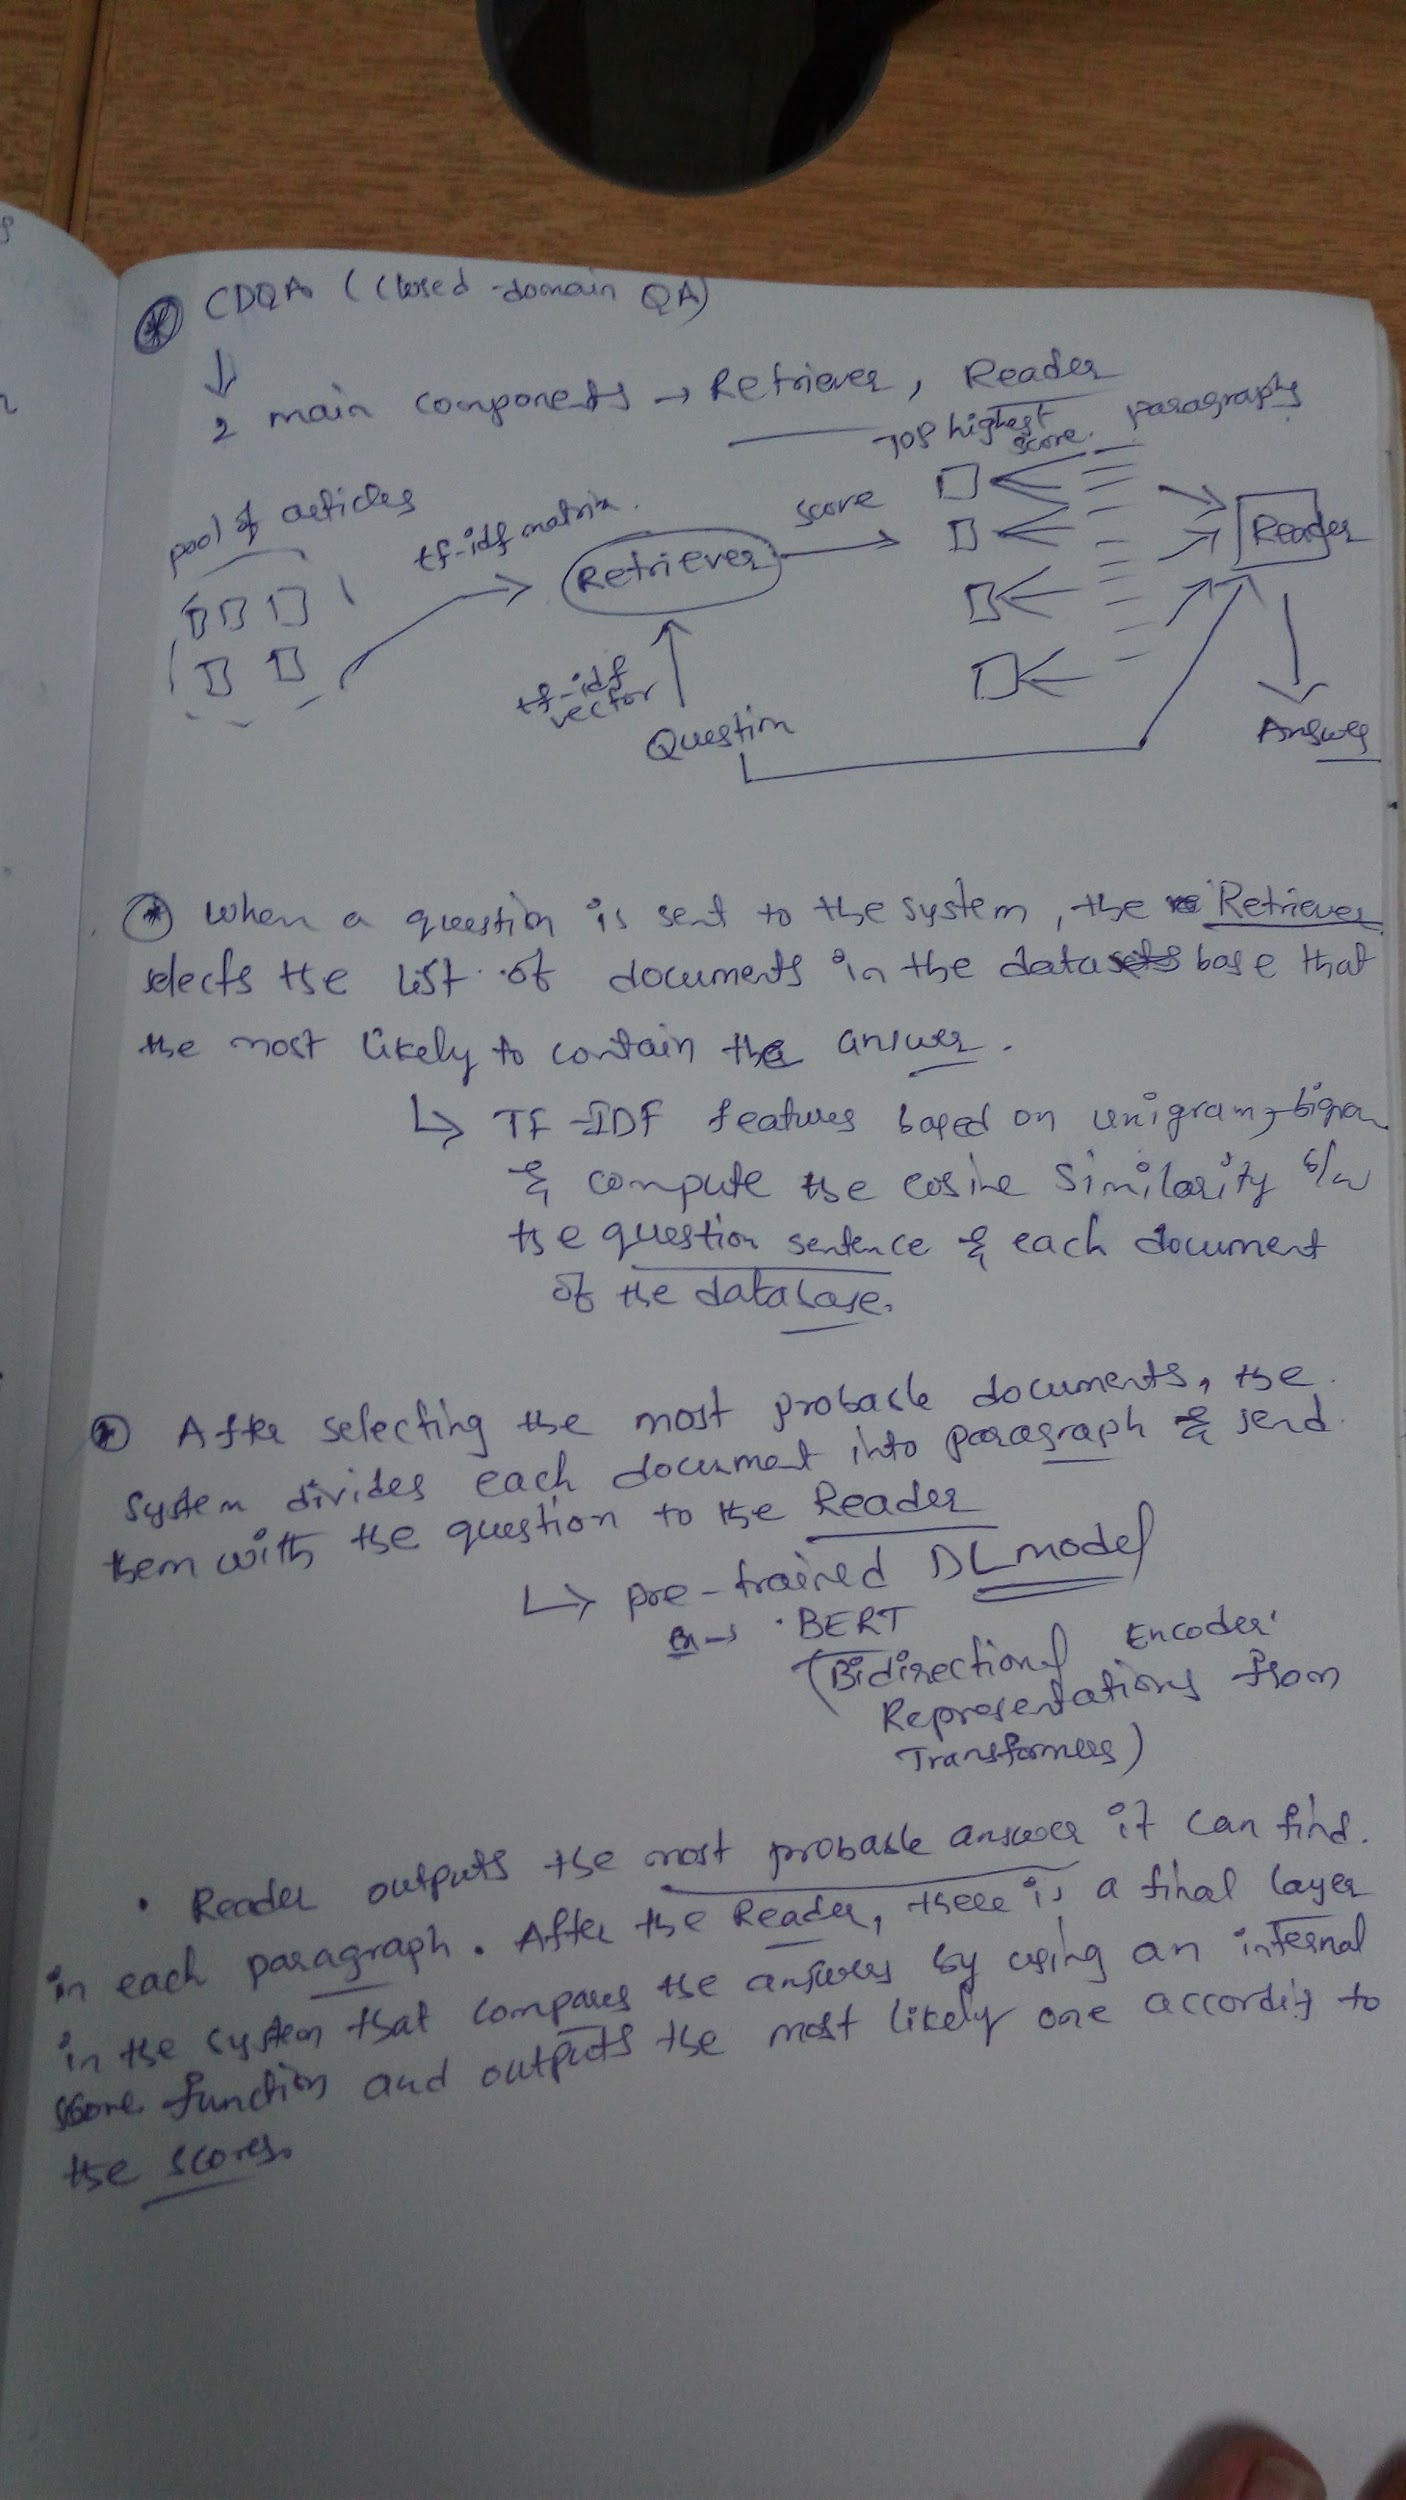 * CDQA (Closed-domain QA)
2 main components → Retriever, Reader
Top highest score. paragraphs
pool of articles
tf-idf matrix.
Retriever
score
Reader
tf-idf vector
Question
Answer
* When a question is sent to the system, the Retriever
selects the list of documents in the database that
the most likely to contain the answer.
↳ TF-IDF features based on unigram, bigram
& compute the cosine similarity b/w
the question sentence & each document
of the database.
* After selecting the most probable documents, the
system divides each document into paragraph & send
them with the question to the Reader
↳ pre-trained DL model
→ · BERT
(Bidirectional Encoder
Representations from
Transformers)
· Reader outputs the most probable answer it can find.
in each paragraph. After the Reader, there is a final layer
in the system that compares the answers by using an internal
score function and outputs the most likely one according to
the scores.